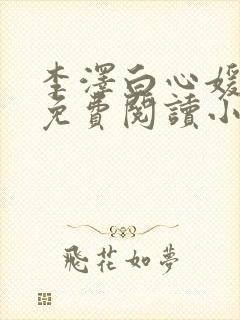 李澤白心媛
免費閱讀小
飛花如夢